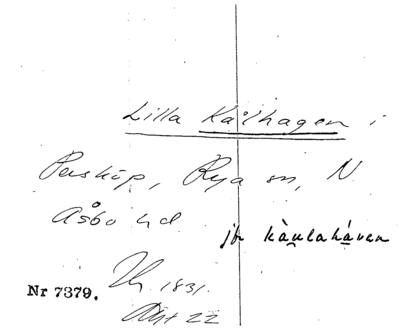 Lilla Kålhagen i
Perstorp, Rya sn, N
Åsbo hd
jfr kàulaháven
Nr 7379.
1831.
Akt 22